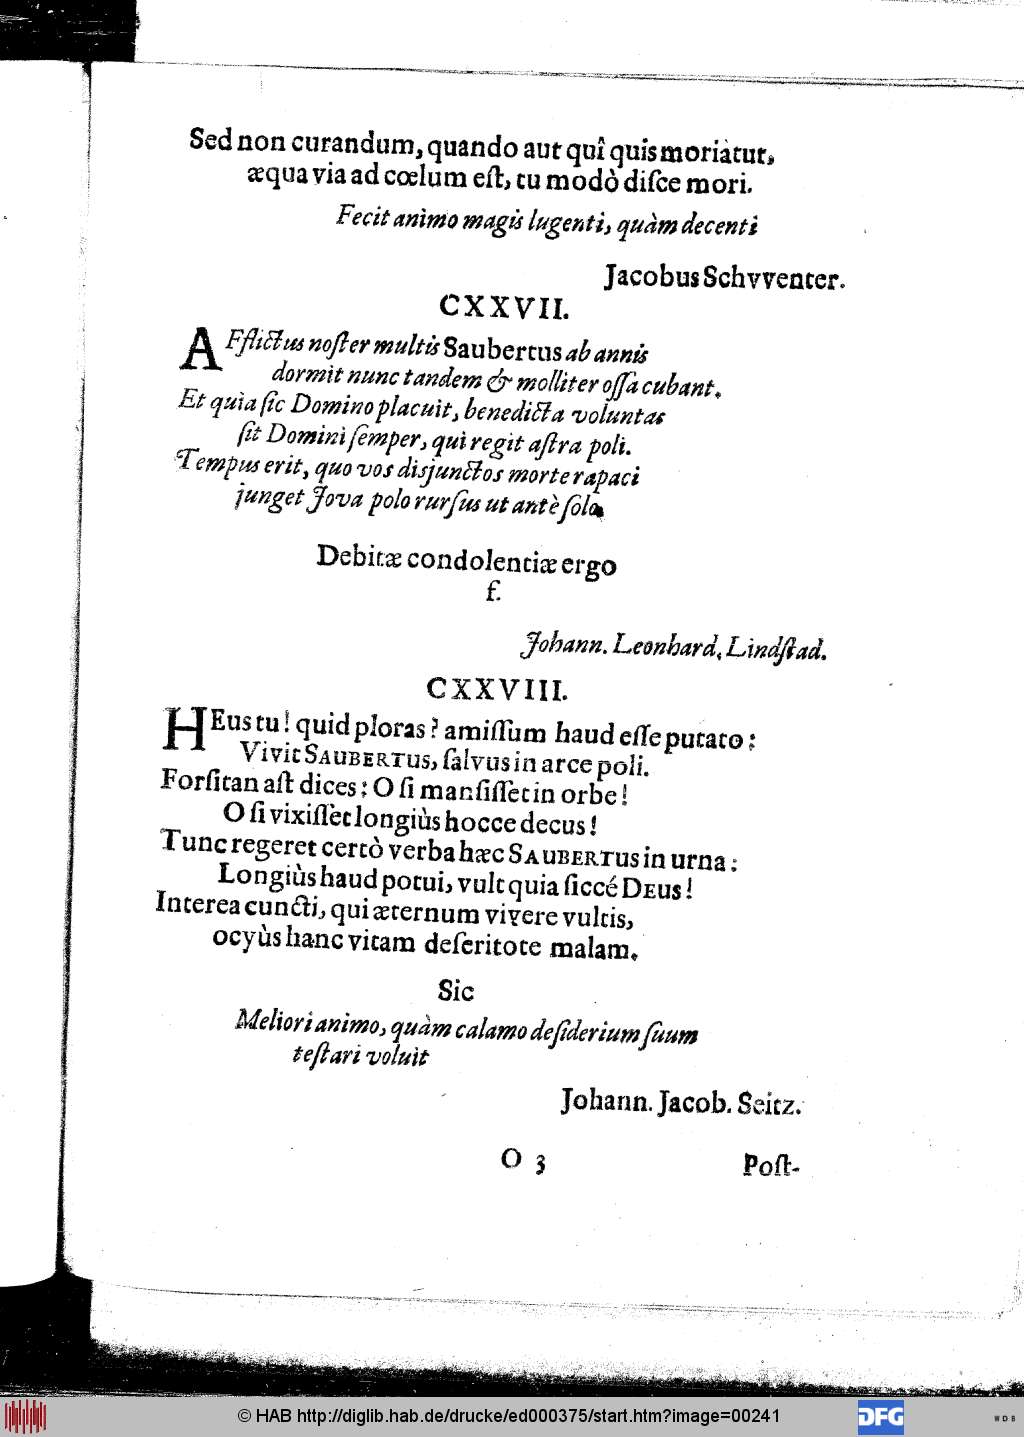 Sed non curandum, quando aut quî quis moriatur,
æqua via ad cœlum eſt, tu modò diſce mori.
Fecit animo magis lugenti, quàm decenti
Jacobus Schvventer.
CXXVII.
AFflictus noſter multis Saubertus ab annis
dormit nunc tandem & molliter oſſa cubant.
Et quia ſic Domino placuit, benedicta voluntas
ſit Domini ſemper, qui regit aſtra poli.
Tempus erit, quo vos disjunctos morte rapaci
junget Jova polo rurſus ut antè ſolo.
Debitæ condolentiæ ergo
f.
Johann. Leonhard. Lindſtad.
CXXVIII.
HEus tu! quid ploras? amiſſum haud eſſe putato:
Vivit SAUBERTUS, ſalvus in arce poli.
Forſitan aſt dices: O ſi manſiſſet in orbe!
O ſi vixiſſet longiùs hocce decus!
Tunc regeret certò verba hæc SAUBERTUS in urna:
Longiùs haud potui, vult quia ſiccé DEUS!
Interea cuncti, qui æternum vivere vultis,
ocyùs hanc vitam deſeritote malam.
Sic
Meliori animo, quàm calamo deſiderium ſuum
teſtari voluit
Johann. Jacob. Seitz.
O 3 Poſt-
© HAB http://diglib.hab.de/drucke/ed000375/start.htm?image=00241
DFG
WDB